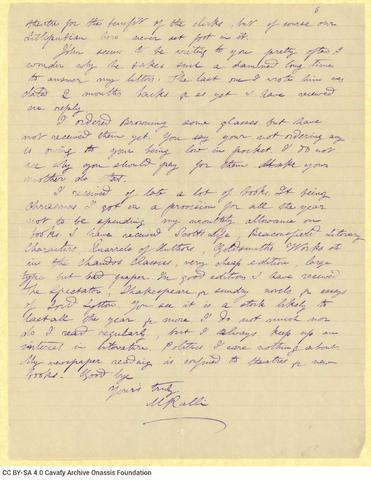 8
theatre for the benefit of the clerks, but of course our
Lilliputian hero never set foot in it.
John seems to be writing to you pretty often I
wonder why he takes such a damned long time
to answer my letters. The last one I wrote him was
dated 2 months back & as yet I have received
no reply.
I ordered Browning some glasses but have
not received them yet. You say your not ordering any
is owing to your being low in pocket I do not
see why you should pay for them Make your
mother do that.
I received of late a lot of books. It being
Christmas I got in a provision for all the year
not to be spending my monthly allowance on
books. I have received Scott's Life, Beaconsfield Literary
Characters, Quarrels of Authors, Goldsmith's Works
in the Chandos Classics, very cheap edition, large
type but bad paper. In good editions I have received
the Spectator, Shakespeare & sundry novels & essays
of Lord Lytton. You see it is a stock likely to
last all the year & more I do not much now
do I read regularly, but I always keep up an
interest in literature. Politics I care nothing about
My newspaper reading is confined to theatres & new
books. Good bye
Yours truly
M Ralli
CC BY-SA 4.0 Cavafy Archive Onassis Foundation